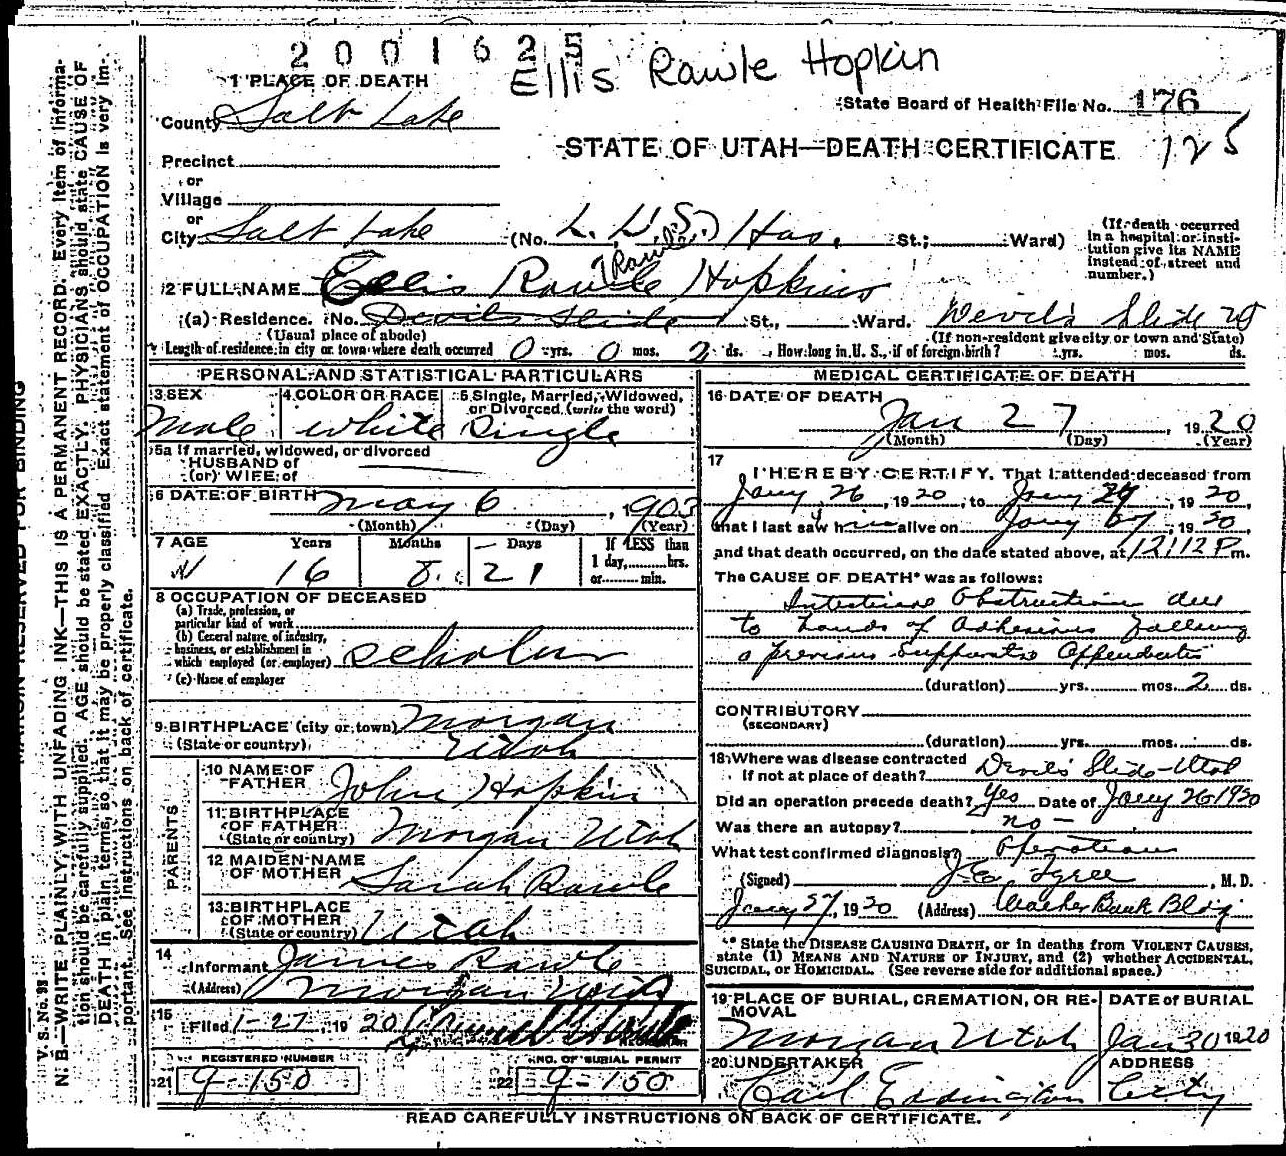 2001625
Ellis Rawle Hopkin
1 PLACE OF DEATH
State Board of Health File No. 176
County Salt Lake
STATE OF UTAH—DEATH CERTIFICATE 125
Precinct
or
Village
or
City Salt Lake (No. L. D. S. Hos. St.; Ward)
(If death occurred in a hospital or insti-
tution give its NAME
instead of street and
number.)
(Rawle)
2 FULL NAME Ellis Rawle Hopkins
(a) Residence. No. Devils Slide St., Ward. Devil's Slide
(Usual place of abode) (If non-resident give city or town and State)
Length of residence in city or town where death occurred 0 yrs. 0 mos. 2 ds. How long in U. S., if of foreign birth? yrs. mos. ds.
PERSONAL AND STATISTICAL PARTICULARS
3 SEX Male
4 COLOR OR RACE white
5 Single, Married, Widowed,
or Divorced (write the word)
Single
5a If married, widowed, or divorced
HUSBAND of
(or) WIFE of
6 DATE OF BIRTH May 6, 1903
(Month) (Day) (Year)
7 AGE Years Months Days If LESS than
1 day, hrs.
or min.
16 8 21
8 OCCUPATION OF DECEASED
(a) Trade, profession, or
particular kind of work
(b) General nature of industry,
business, or establishment in
which employed (or employer) scholar
(c) Name of employer
9 BIRTHPLACE (city or town) Morgan
(State or country) Utah
PARENTS
10 NAME OF
FATHER John Hopkin
11 BIRTHPLACE
OF FATHER
(State or country) Morgan Utah
12 MAIDEN NAME
OF MOTHER Sarah Rawle
13 BIRTHPLACE
OF MOTHER
(State or country) Utah
14
Informant James Rawle
(Address) Morgan Utah
15
Filed 1-27, 1920
REGISTERED NUMBER
21 9-150
NO. OF BURIAL PERMIT
22 9-150
MEDICAL CERTIFICATE OF DEATH
16 DATE OF DEATH
Jan 27, 1920
(Month) (Day) (Year)
17
I HEREBY CERTIFY, That I attended deceased from
Jany 26, 1920, to Jany 27, 1920,
that I last saw him alive on Jany 27, 1920
and that death occurred, on the date stated above, at 12:12 P m.
The CAUSE OF DEATH* was as follows:
Intestinal Obstruction due
to bands of Adhesions following
a previous suppurative Appendicitis
(duration) yrs. mos. 2 ds.
CONTRIBUTORY
(SECONDARY)
(duration) yrs. mos. ds.
18 Where was disease contracted
If not at place of death? Devils Slide-Utah
Did an operation precede death? Yes Date of Jany 26 1920
Was there an autopsy? no -
What test confirmed diagnosis? Operation
(Signed) J. E. Tyree, M. D.
Jany 27, 1920 (Address) Walker Bank Bldg
* State the DISEASE CAUSING DEATH, or in deaths from VIOLENT CAUSES,
state (1) MEANS AND NATURE OF INJURY, and (2) whether ACCIDENTAL,
SUICIDAL, or HOMICIDAL. (See reverse side for additional space.)
19 PLACE OF BURIAL, CREMATION, OR RE-
MOVAL
Morgan Utah
DATE of BURIAL
Jan 30 1920
20 UNDERTAKER
Carl Eddington
ADDRESS
City
READ CAREFULLY INSTRUCTIONS ON BACK OF CERTIFICATE.
MARGIN RESERVED FOR BINDING
V. S. No. 98
N. B.—WRITE PLAINLY, WITH UNFADING INK—THIS IS A PERMANENT RECORD. Every item of informa-
tion should be carefully supplied. AGE should be stated EXACTLY. PHYSICIANS should state CAUSE OF
DEATH in plain terms, so that it may be properly classified. Exact statement of OCCUPATION is very im-
portant. See instructions on back of certificate.